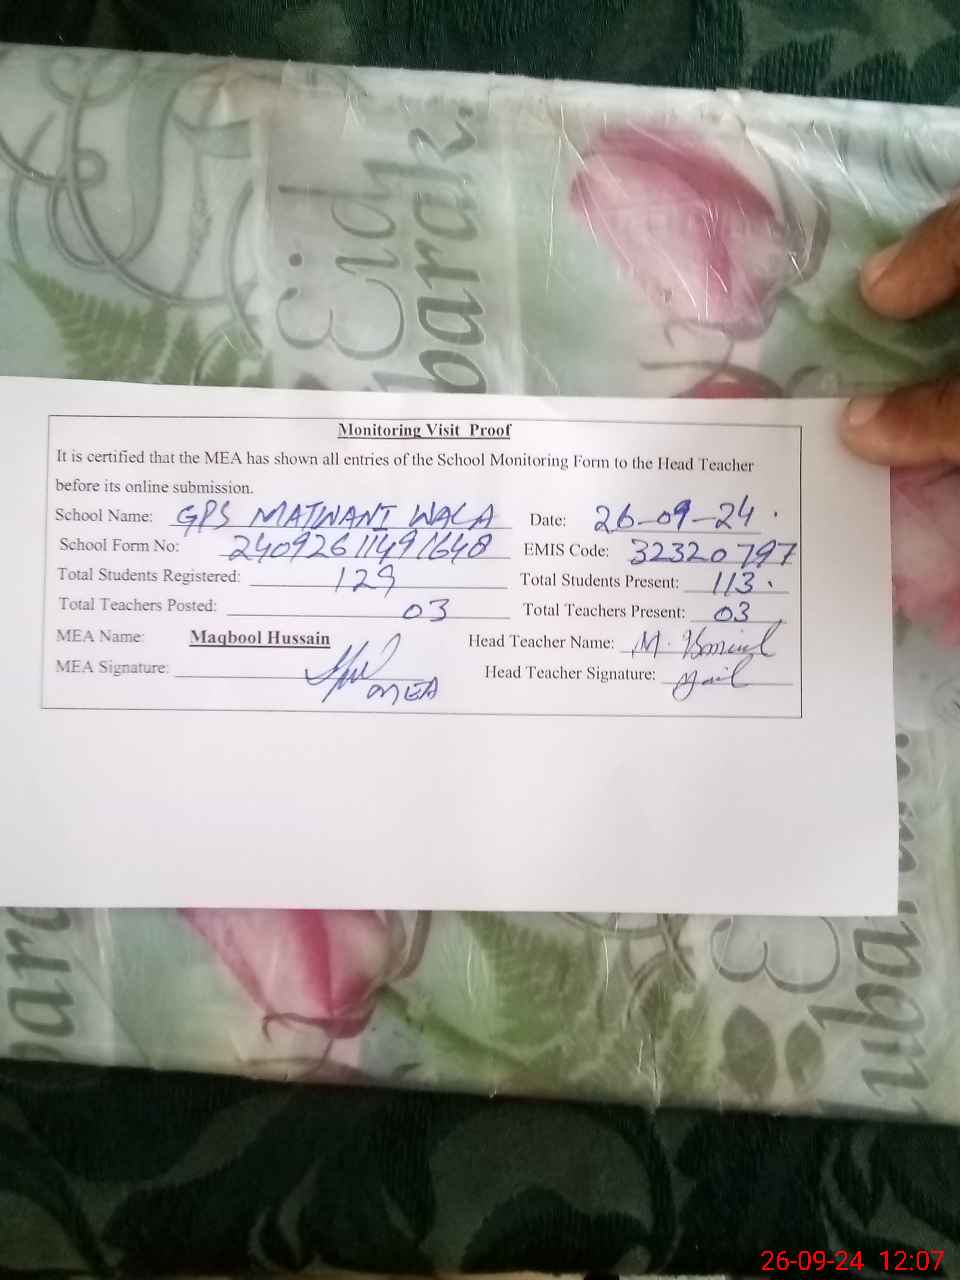 Eid
barak.
Monitoring Visit Proof
It is certified that the MEA has shown all entries of the School Monitoring Form to the Head Teacher
before its online submission.
School Name: GPS MATWANI WALA Date: 26-09-24
School Form No: EMIS Code: 32320797
Total Students Registered: 129 Total Students Present: 113
Total Teachers Posted: 03 Total Teachers Present: 03
MEA Name: Maqbool Hussain Head Teacher Name: M.
MEA Signature: MEA Head Teacher Signature:
barak
Eid
ubarak.
26-09-24 12:07